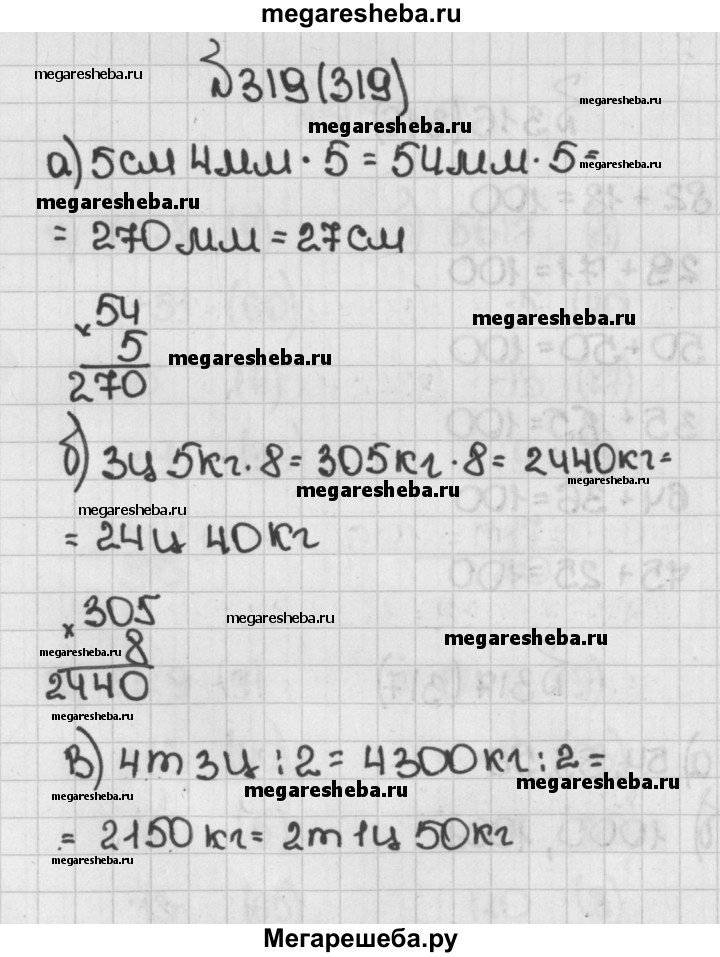 megaresheba.ru
megaresheba.ru
№319(319)
megaresheba.ru
а) 5см 4мм · 5 = 54мм · 5 =
megaresheba.ru
megaresheba.ru
= 270мм = 27см
× 54
megaresheba.ru
5
megaresheba.ru
270
б) 3ц 5кг · 8 = 305кг · 8 = 2440кг =
megaresheba.ru
megaresheba.ru
= 24ц 40кг
× 305
megaresheba.ru
megaresheba.ru
8
megaresheba.ru
2440
megaresheba.ru
в) 4т 3ц : 2 = 4300кг : 2 =
megaresheba.ru
megaresheba.ru
megaresheba.ru
= 2150кг = 2т 1ц 50кг
megaresheba.ru
Мегарешеба.ру